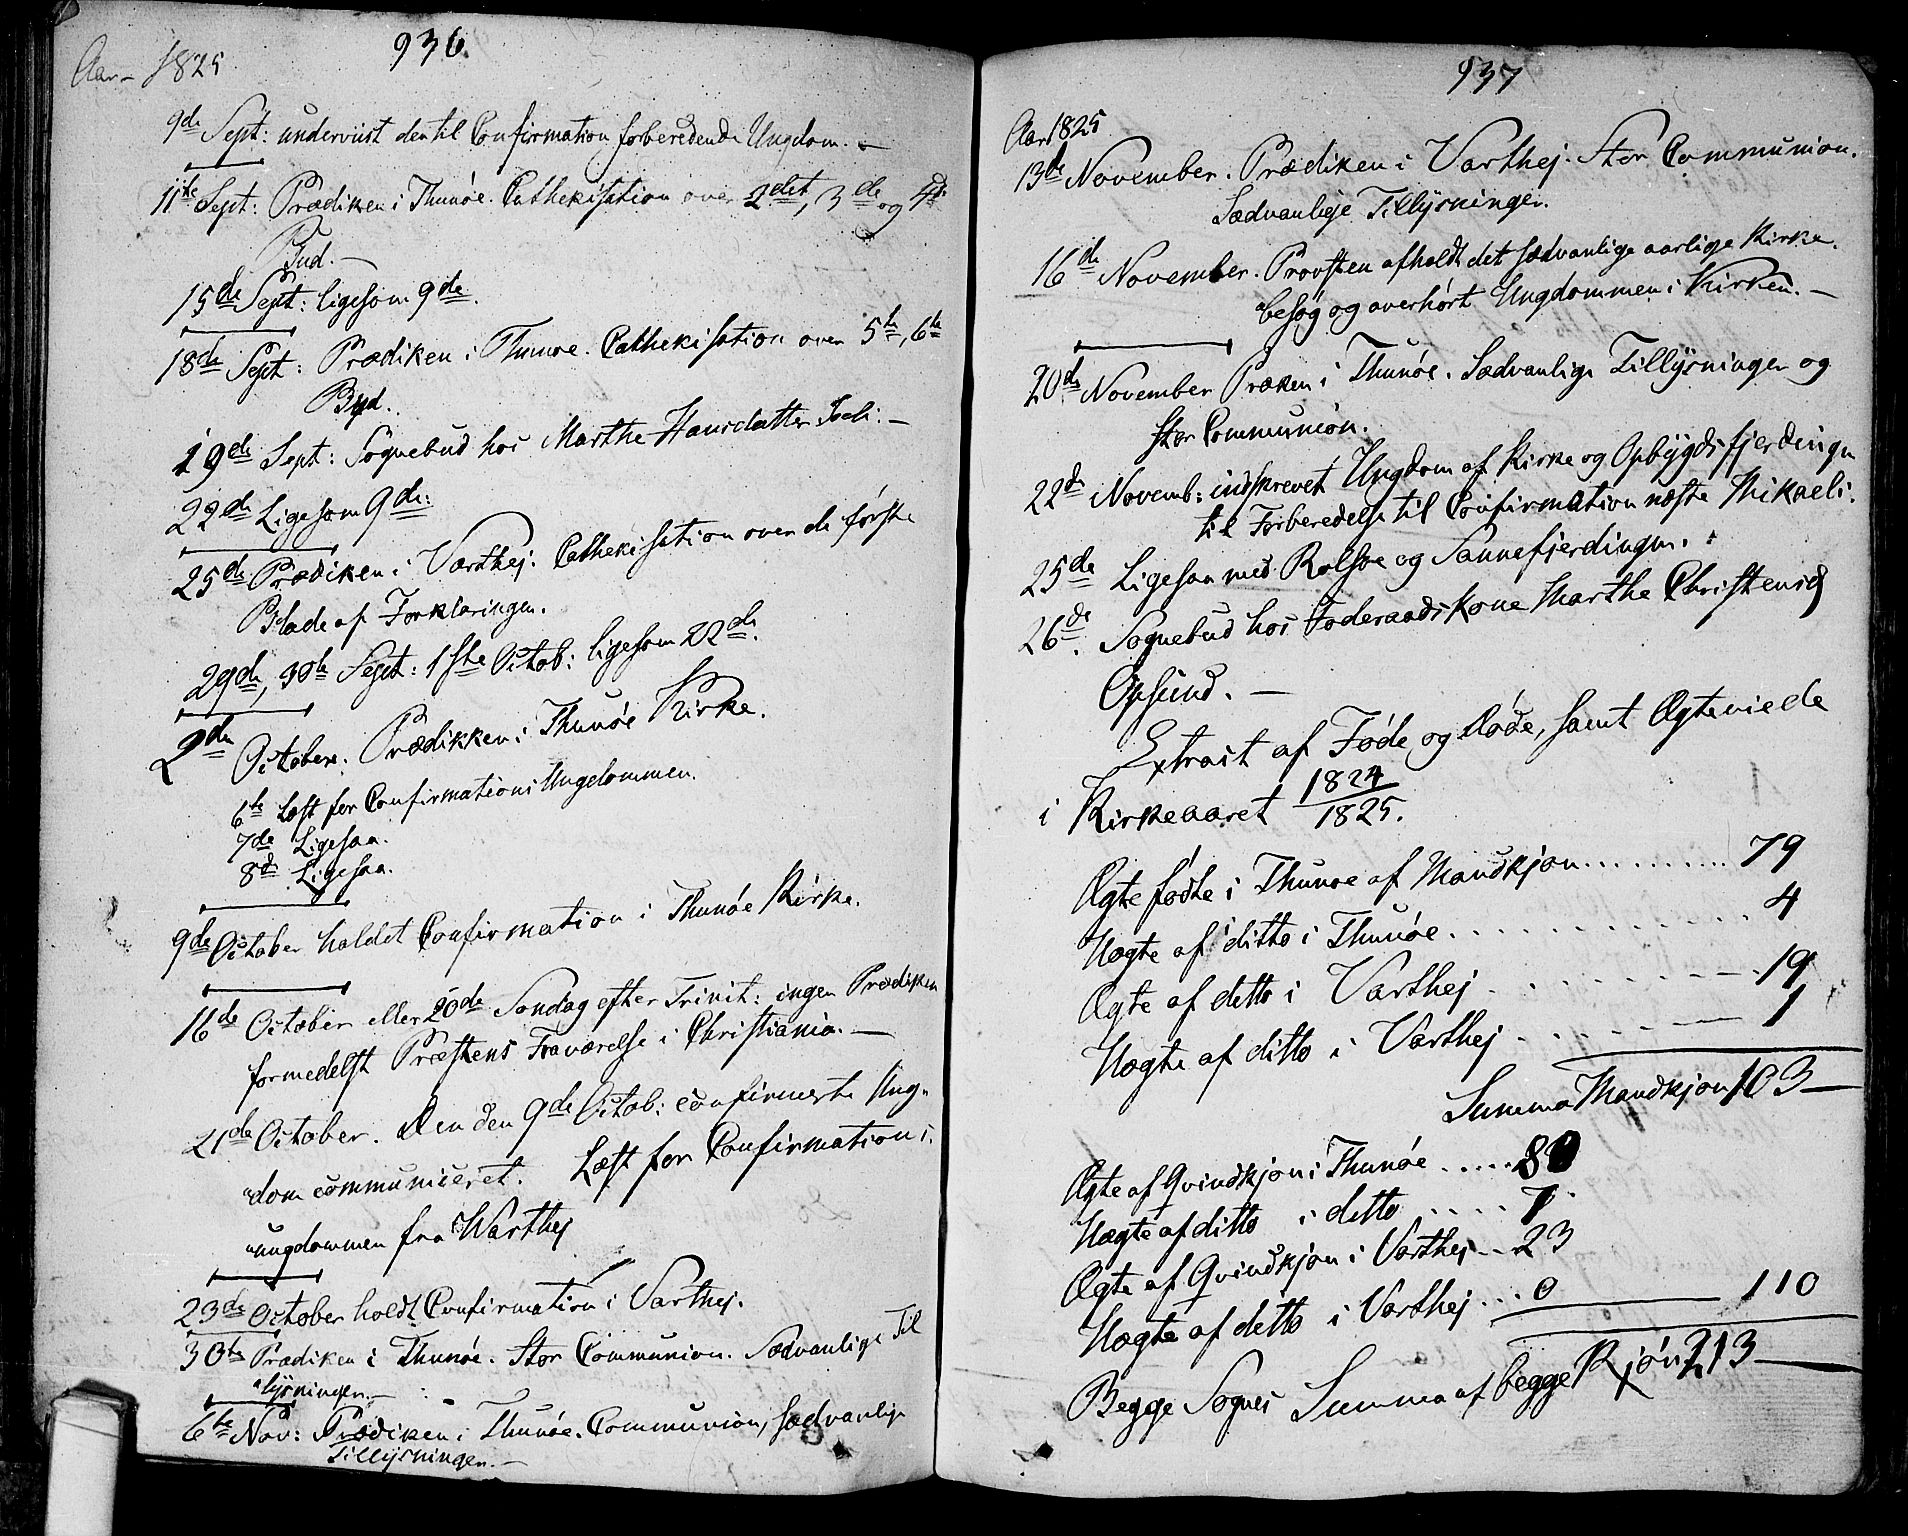 936.
Aar 1825
9de Sept: underviist den til Confirmation forberedende Ungdom. —
11te Sept: Prædiken i Thunøe. Cathekisation over 2det, 3de og 4de
Bud. —
15de Sept: ligesom 9de.
18de Sept: Prædiken i Thunøe. Cathekisation over 5te, 6te
Bud.
19de Sept: Sognebud hos Marthe Hansdatter —
22de Ligesom 9de:
25de Prædiken i Varthej. Cathekisation over de første
Blade af Forklaringen.
29de, 30te Sept: 1ste Octob: ligesom 22de.
2den October. Prædikken i Thunøe Kirke.
6te Læst for Confirmations Ungdommen.
7de Ligesaa.
8de Ligesaa.
9de October holdet Confirmation i Thunøe Kirke.
16de October eller 20de Søndag efter Trinit: ingen Prædiken
formedelst Præstens Fraværelse i Christiania. —
21de October. Den den 9de Octob: confirmerte Ung-
dom communiceret. Læst for Confirmations
ungdommen fra Warthej
23de October holdt Confirmation i Varthej.
30te Prædiken i Thunøe. Stor Communion. Sædvanlige Til
lysninger. —
6te Nov: Prædiken i Thunøe. Communion, sædvanlige
Tillysninger. —
937
Aar 1825
13de November. Prædiken i Varthej. Stor Communion.
Sædvanlige Tillysninger.
16de November. Provsten afholdt det sædvanlige aarlige Kirke-
besøg og overhørt Ungdommen i Kirken. —
20de November Præken i Thunøe. Sædvanlige Tillysninger og
stor Communion.
22de Novemb: indskrevet Ungdom af Kirke og Opbygdsfjerdingen
til Forberedelse til Confirmation næste Mikaeli.
25de Ligesaa med Rolsøe og Sannefjerdingen.
26de. Sognebud hos Foderaadskone Marthe Christensd
Opsund. —
Extract af Føde og Døde, samt Ægteviede
i Kirkeaaret 1824/1825.
Ægte fødte i Thunøe af Mandkjøn .......... 79
Uægte af ditto i Thunøe .......... 4
Ægte af ditto i Varthej .......... 19
Uægte af ditto i Varthej .......... 1
Summa Mandkjøn 103 —
Ægte af Qvindkjøn i Thunøe ..... 80
Uægte af ditto i ditto ..... 7
Ægte af Qvindkjøn i Varthej ... 23
Uægte af ditto i Varthej ... 0 — 110
Begge Sognes Summa af begge Kjøn 213 —